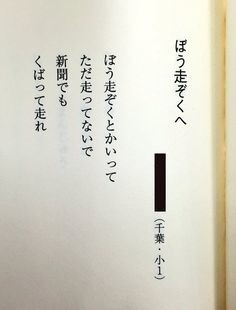 ぼう走ぞくへ
（千葉・小１）
ぼう走ぞくとかいって
ただ走ってないで
新聞でも
くばって走れ